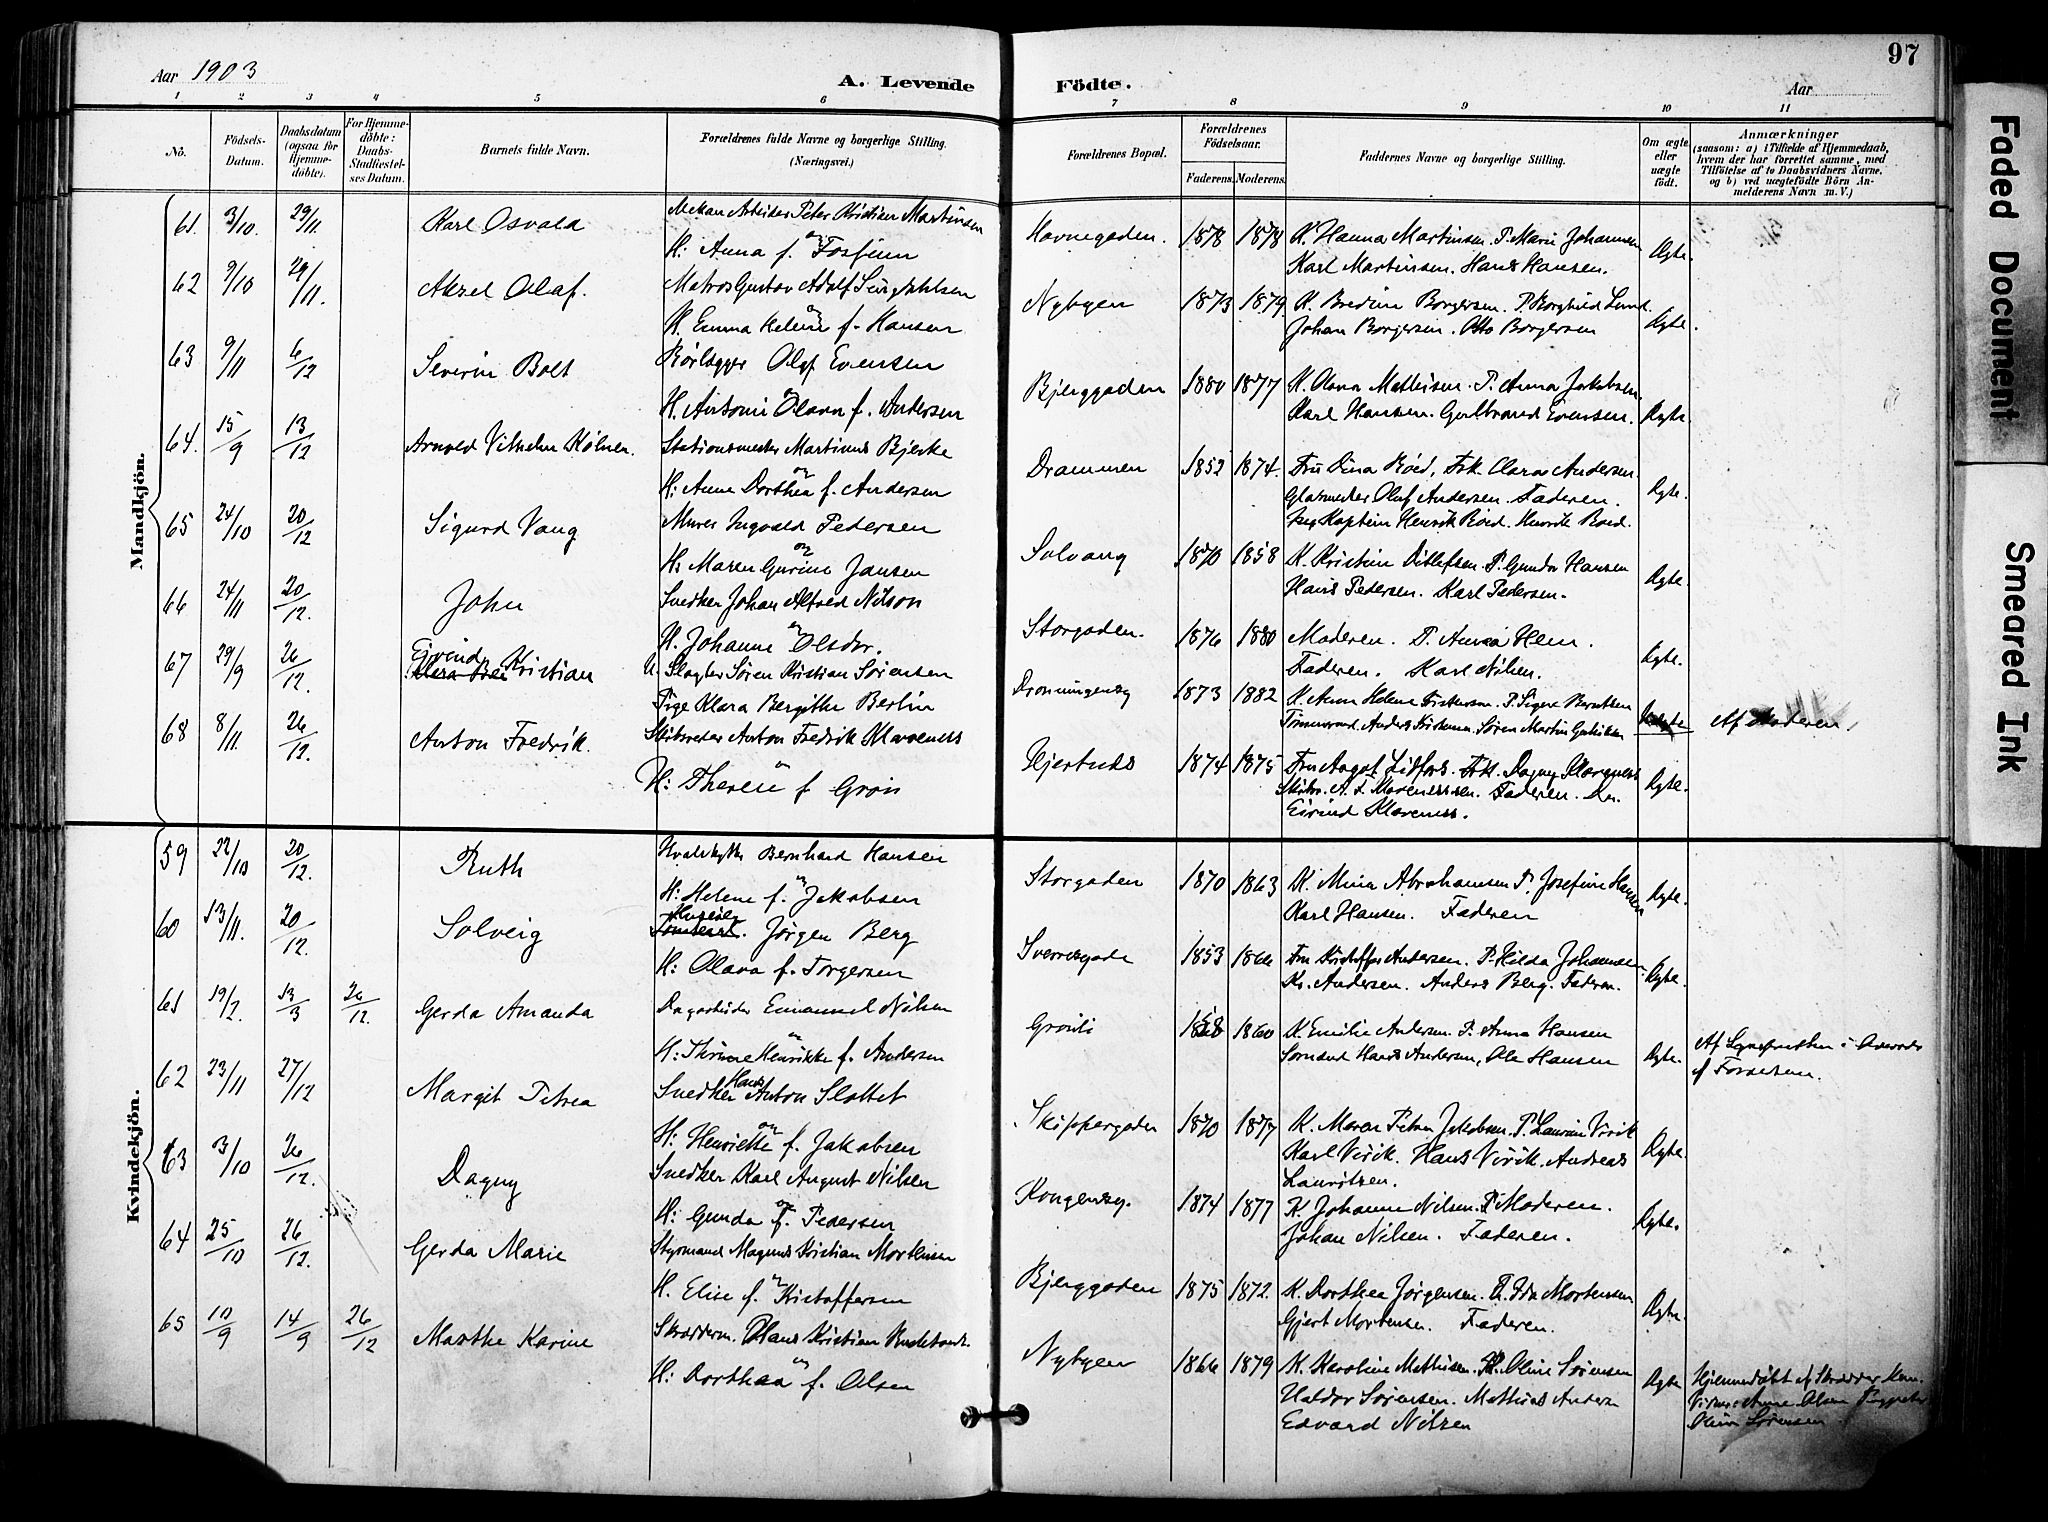 97
Aar 1903
A. Levende Födte.
Aar
1 2 3 4 5 6 7 8 9 10 11
No.
Födsels-Datum.
Daabsdatum (ogsaa for Hjemme-döbte).
For Hjemme-döbte: Daabs-Stadfæstel-ses Datum.
Barnets fulde Navn.
Forældrenes fulde Navne og borgerlige Stilling. (Næringsvei.)
Forældrenes Bopæl.
Forældrenes Födselsaar.
Faderens. Moderens.
Faddernes Navne og borgerlige Stilling.
Om ægte eller uægte födt.
Anmærkninger
(saasom: a) i Tilfælde af Hjemmedaab, hvem der har forrettet samme, med Tilföielse af to Daabsvidners Navne, og b) ved uægtefödte Börn An-melderens Navn m. V.)
Mandkjön.
61. 3/10. 29/11. Karl Osvald Mekan Arbeider Peter Kristian Martinsen Havnegaden. 1878 1878 K. Hanna Martinsen. P. Marie Johannsen Ægte.
og
H: Anna f. Karl Martinsen. Hans Hansen.
62 9/10 29/11. Aksel Olaf. Matros Gustav Adolf Nybyen 1873 1879 K. Bredine Borgersen. P. Borghild Lund Ægte.
og
H. Emma Helene f. Hansen Johan Borgersen. Otto Borgersen
63 9/11 6/12 Severin Bolt Rörlægger Olaf Evensen Bjerggaden 1880 1877 K. Olava Mathisen. P. Anna Jakobsen Ægte.
og
H. Antoni Olava f. Andersen Karl Hansen. Gulbrand Evensen.
64. 15/9 13/12 Arnold Vilhelm Stationsmester Martinus Bjerke Drammen 1852 1874. Fru Dina Röed, Frk. Clara Andersen Ægte.
og
H: Anne Dorthea f. Andersen Glasmester Oluf Andersen. Faderen.
Kaptein Henrik Röed. Henrik Roed.
65 24/10 20/12 Sigurd Vang Murer Ingvald Pedersen Solvang 1870 1858 K. Kristine Ditlefsen P. Gunda Hansen Ægte.
og
H: Maren Gurine Jansen Hans Pedersen. Karl Pedersen.
66 24/11 20/12. John Snedker Johan Alfred Nilson Storgaden. 1876 1880 Moderen. P. Anna Hem. Ægte.
og
H. Johanne Olsdr. Faderen. Karl Nilsen.
67 29/9 26/12. Eivind Kristian U. Slagter Sören Kristian Sörensen Dronningensg 1873 1882 K. Anna Helene P. Signe Berntsen Af Moderen.
Pige Klara Bergithe Berlin Tömmermand Anders Sören Martin
68 8/11. 26/12. Anton Fredrik. Skibsreder Anton Fredrik Klaveness 1874 1875 Fru Aagot Lidfors. Frk. Dagny Klaveness Ægte.
og
H: Therese f Grön Skibsr. A. F. Klavenessen. Faderen. Dr.
Eivind Klaveness.
Kvindekjön.
59 22/10 20/12. Ruth Hvalskytter Bernhard Hansen Storgaden 1870 1863 K. Mina Abrahamsen P. Josefine Hansen Ægte.
og
H: Helene f. Jakobsen Karl Hansen. Faderen
60 13/11. 20/12. Solveig Jörgen Berg Sverresgade 1853 1866 Fru Kristoffer Andersen. P. Hilda Johannsen Ægte.
H: Olava f. Torgersen Kr. Andersen. Anders Berg. Faderen.
61 19/2. 13/3 26/12. Gerda Amanda Dagarbeider Emanuel Nilsen Grönli 1860 K. Emilie Andersen. P. Anna Hansen Ægte.
og
H: Henrikke f. Andersen Sömand Hans Andersen, Ole Hansen
62 23/11 27/12 Margit Petrea Snedker Hans Anton Slottet Skippergaden 1870 1877 K. Maren Petrea Jakobsen. P. Laurine Virik Ægte.
og
H: Henriette f. Jakobsen Karl Virik. Hans Virik. Andreas
Lauritsen.
63 3/10 26/12. Dagny Snedker Karl August Nilsen Kongensg. 1874 1877 K. Johanne Nilsen. P. Moderen. Ægte.
og
H: Gunda f. Pedersen Johan Nilsen. Faderen.
64 25/10 26/12. Gerda Marie Styrmand Magnus Kristian Mortensen Bjerggaden 1875 1872. K. Dorthea Jörgensen. P. Ida Mortensen Ægte.
og
H. Elise f. Kristoffersen Gjert Mortensen. Faderen.
65 10/9 14/9 26/12 Marthe Karine Skrædderm. Hans Kristian Nybyen 1866 1879 K. Karoline Mathisen P. Oline Sörensen Ægte Hjemmedöbt af Skrædder
og
H: Dorthea f. Olsen Haldor Sörensen. Mathias Anders Anne Olsen
Edvard Nilsen Sörensen
Faded Document
Smeared Ink